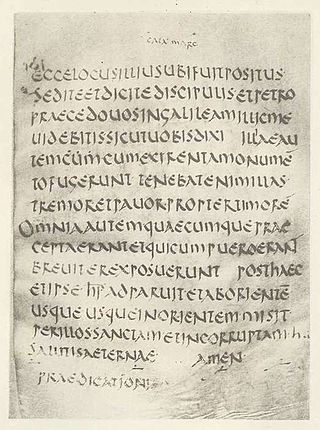 CATA MARC
ECCELOCUSILLIUSUBIFUITPOSITUS
SEDITEETDICITEDISCIPULISETPETRO
PRAECEDOUOSINGALILEAMILLICME
UIDEBITISSICUTUOBISDIXI ILLAEAU
TEMCUMCUMEXIRENTAMONUME
TOFUGERUNT TENEBATENIMILLAS
TREMORETPAUORPROPTERTIMORE
OMNIAAUTEMQUAECUMQUEPRAE
CEPTAERANTETQUICUMPUEROERAN
BREUITEREXPOSUERUNT POSTHAEC
ETIPSE ADPARUITETABORIENTĒ
USQUEUSQUEINORIENTEMMISIT
PERILLOSSANCTAMETINCORRUPTAM
SALUTISAETERNAE AMEN
PRAEDICATIONIS